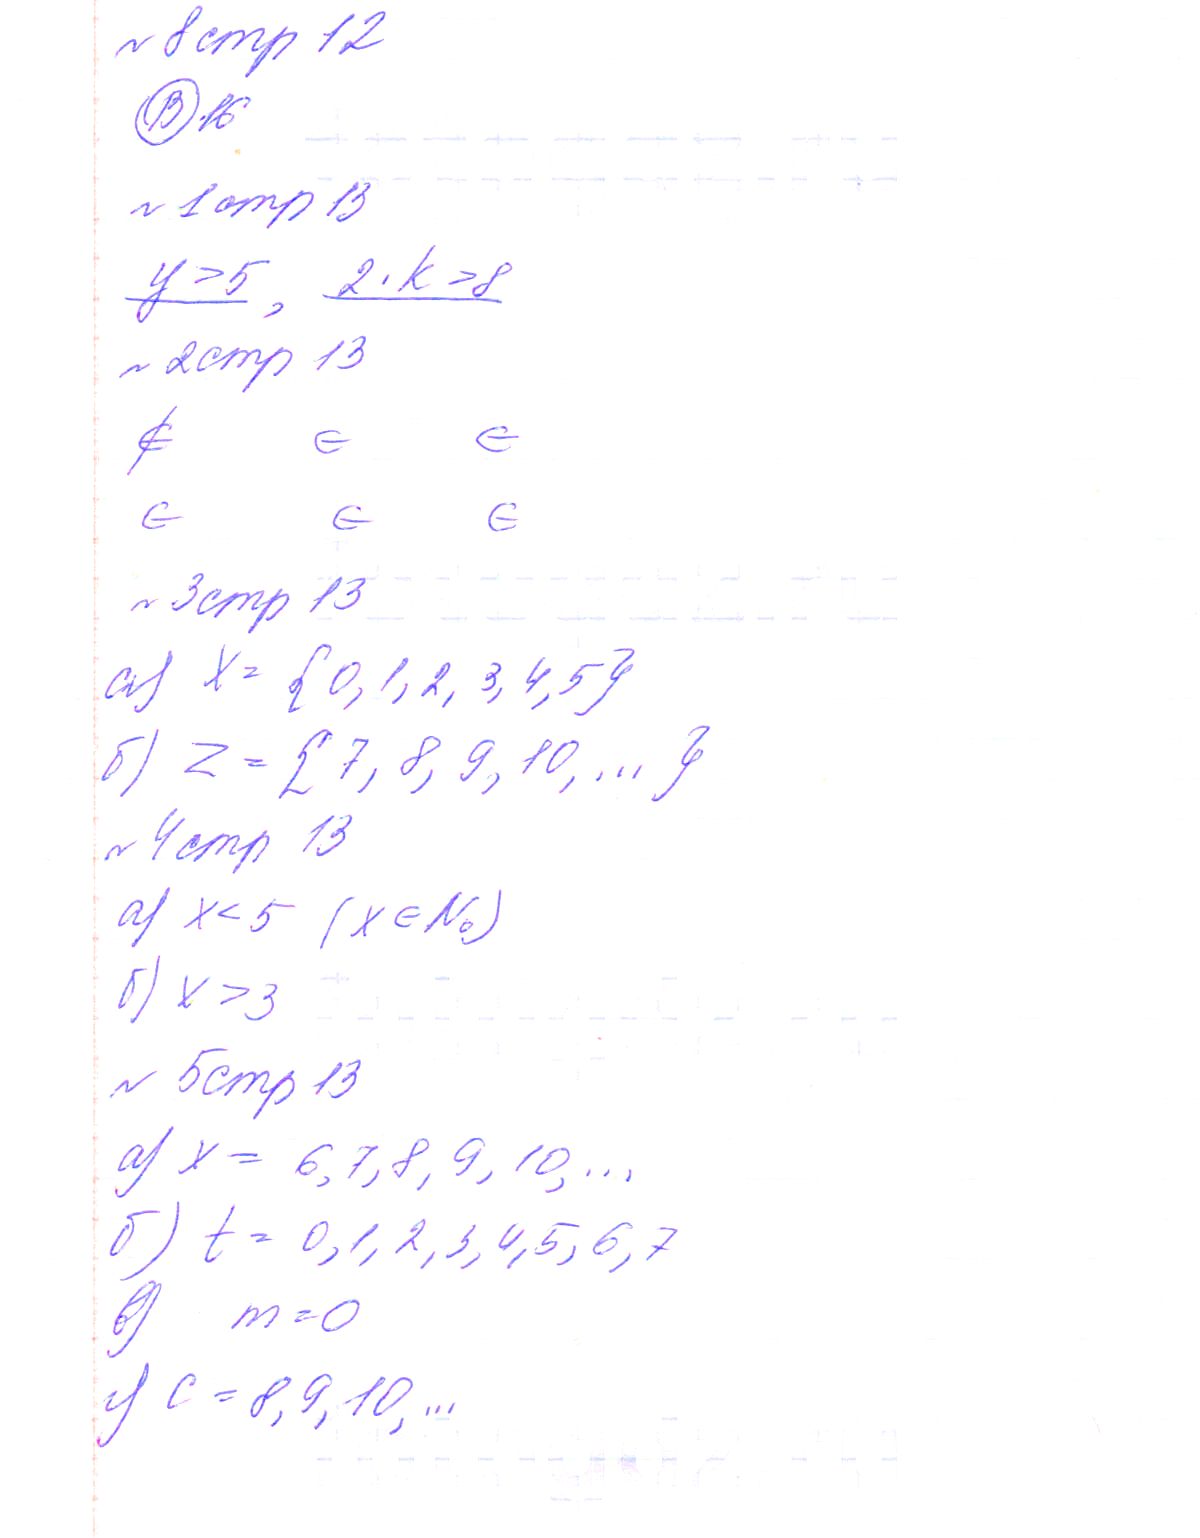 № 8 стр 12
В 16
№ 1 стр 13
y > 5, 2 · k > 8
№ 2 стр 13
∉ ∈ ∈
∈ ∈ ∈
№ 3 стр 13
а) X = {0, 1, 2, 3, 4, 5}
б) Z = {7, 8, 9, 10, ... }
№ 4 стр 13
а) x < 5 (x ∈ N₀)
б) x > 3
№ 5 стр 13
а) x = 6, 7, 8, 9, 10, ...
б) t = 0, 1, 2, 3, 4, 5, 6, 7
в) m = 0
г) c = 8, 9, 10, ...